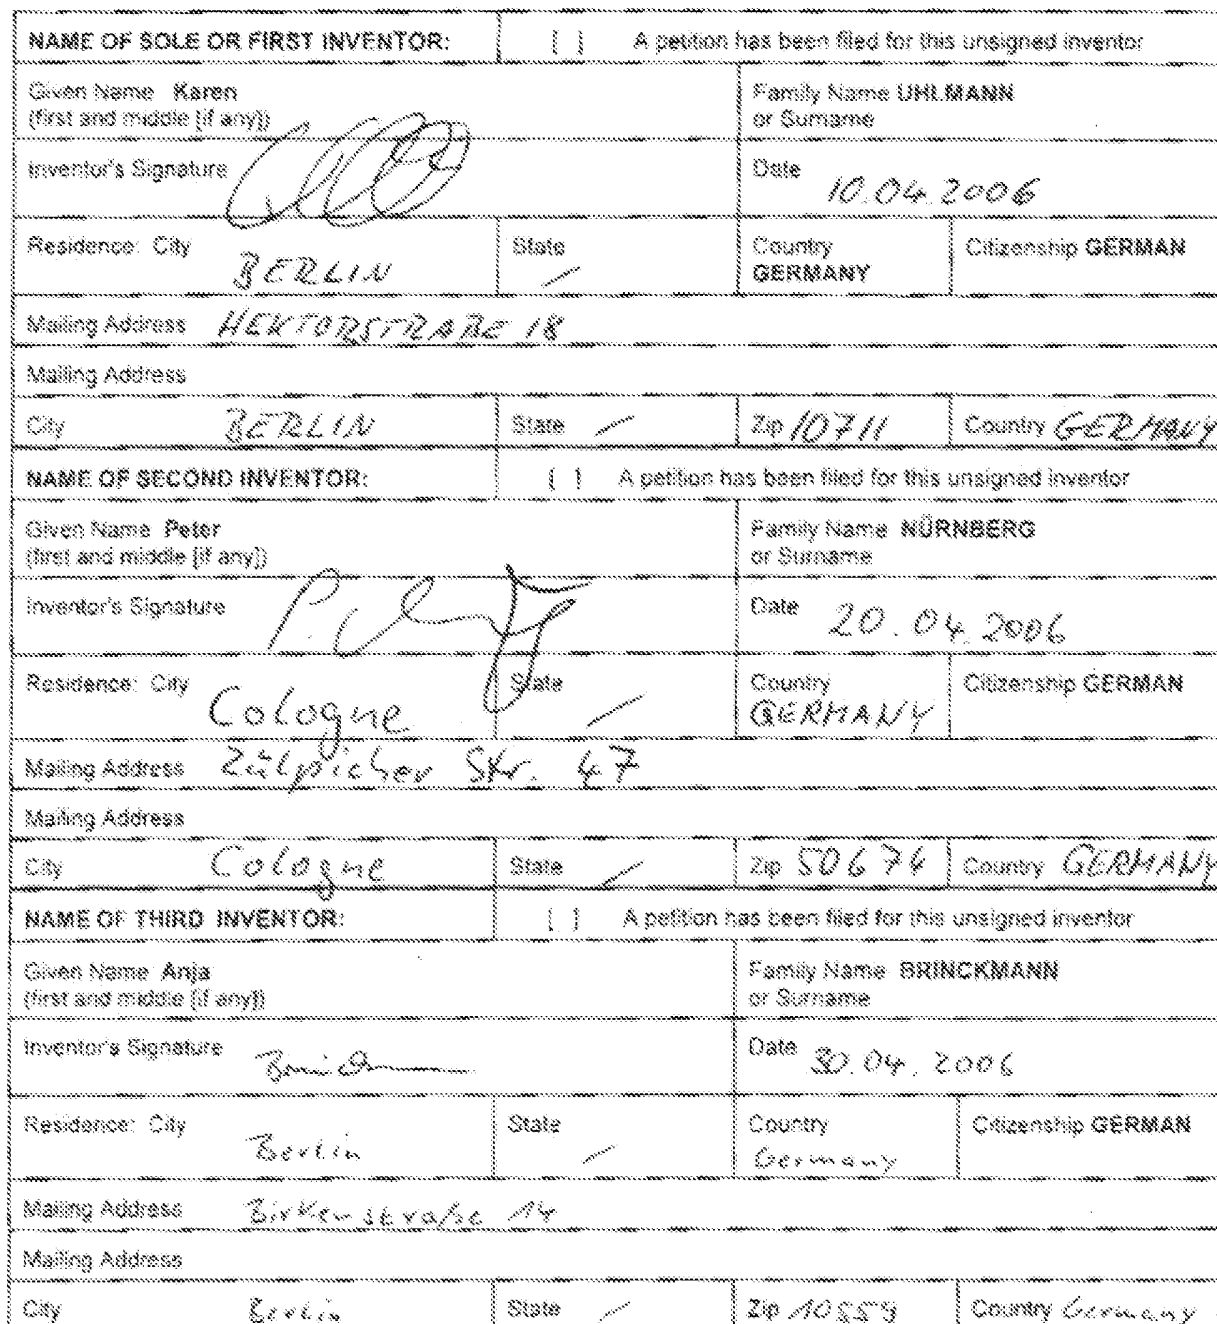 NAME OF SOLE OR FIRST INVENTOR: [ ] A petition has been filed for this unsigned inventor
Given Name Karen Family Name UHLMANN
(first and middle [if any]) or Surname
Inventor's Signature Date 10.04.2006
Residence: City BERLIN State / Country GERMANY Citizenship GERMAN
Mailing Address HEKTORSTRAßE 18
Mailing Address
City BERLIN State / Zip 10711 Country GERMANY
NAME OF SECOND INVENTOR: [ ] A petition has been filed for this unsigned inventor
Given Name Peter Family Name NÜRNBERG
(first and middle [if any]) or Surname
Inventor's Signature Date 20.04.2006
Residence: City Cologne State / Country GERMANY Citizenship GERMAN
Mailing Address Zülpicher Str. 47
Mailing Address
City Cologne State / Zip 50674 Country GERMANY
NAME OF THIRD INVENTOR: [ ] A petition has been filed for this unsigned inventor
Given Name Anja Family Name BRINCKMANN
(first and middle [if any]) or Surname
Inventor's Signature Date 30.04.2006
Residence: City Berlin State / Country Germany Citizenship GERMAN
Mailing Address Birkenstraße 14
Mailing Address
City Berlin State / Zip 10559 Country Germany